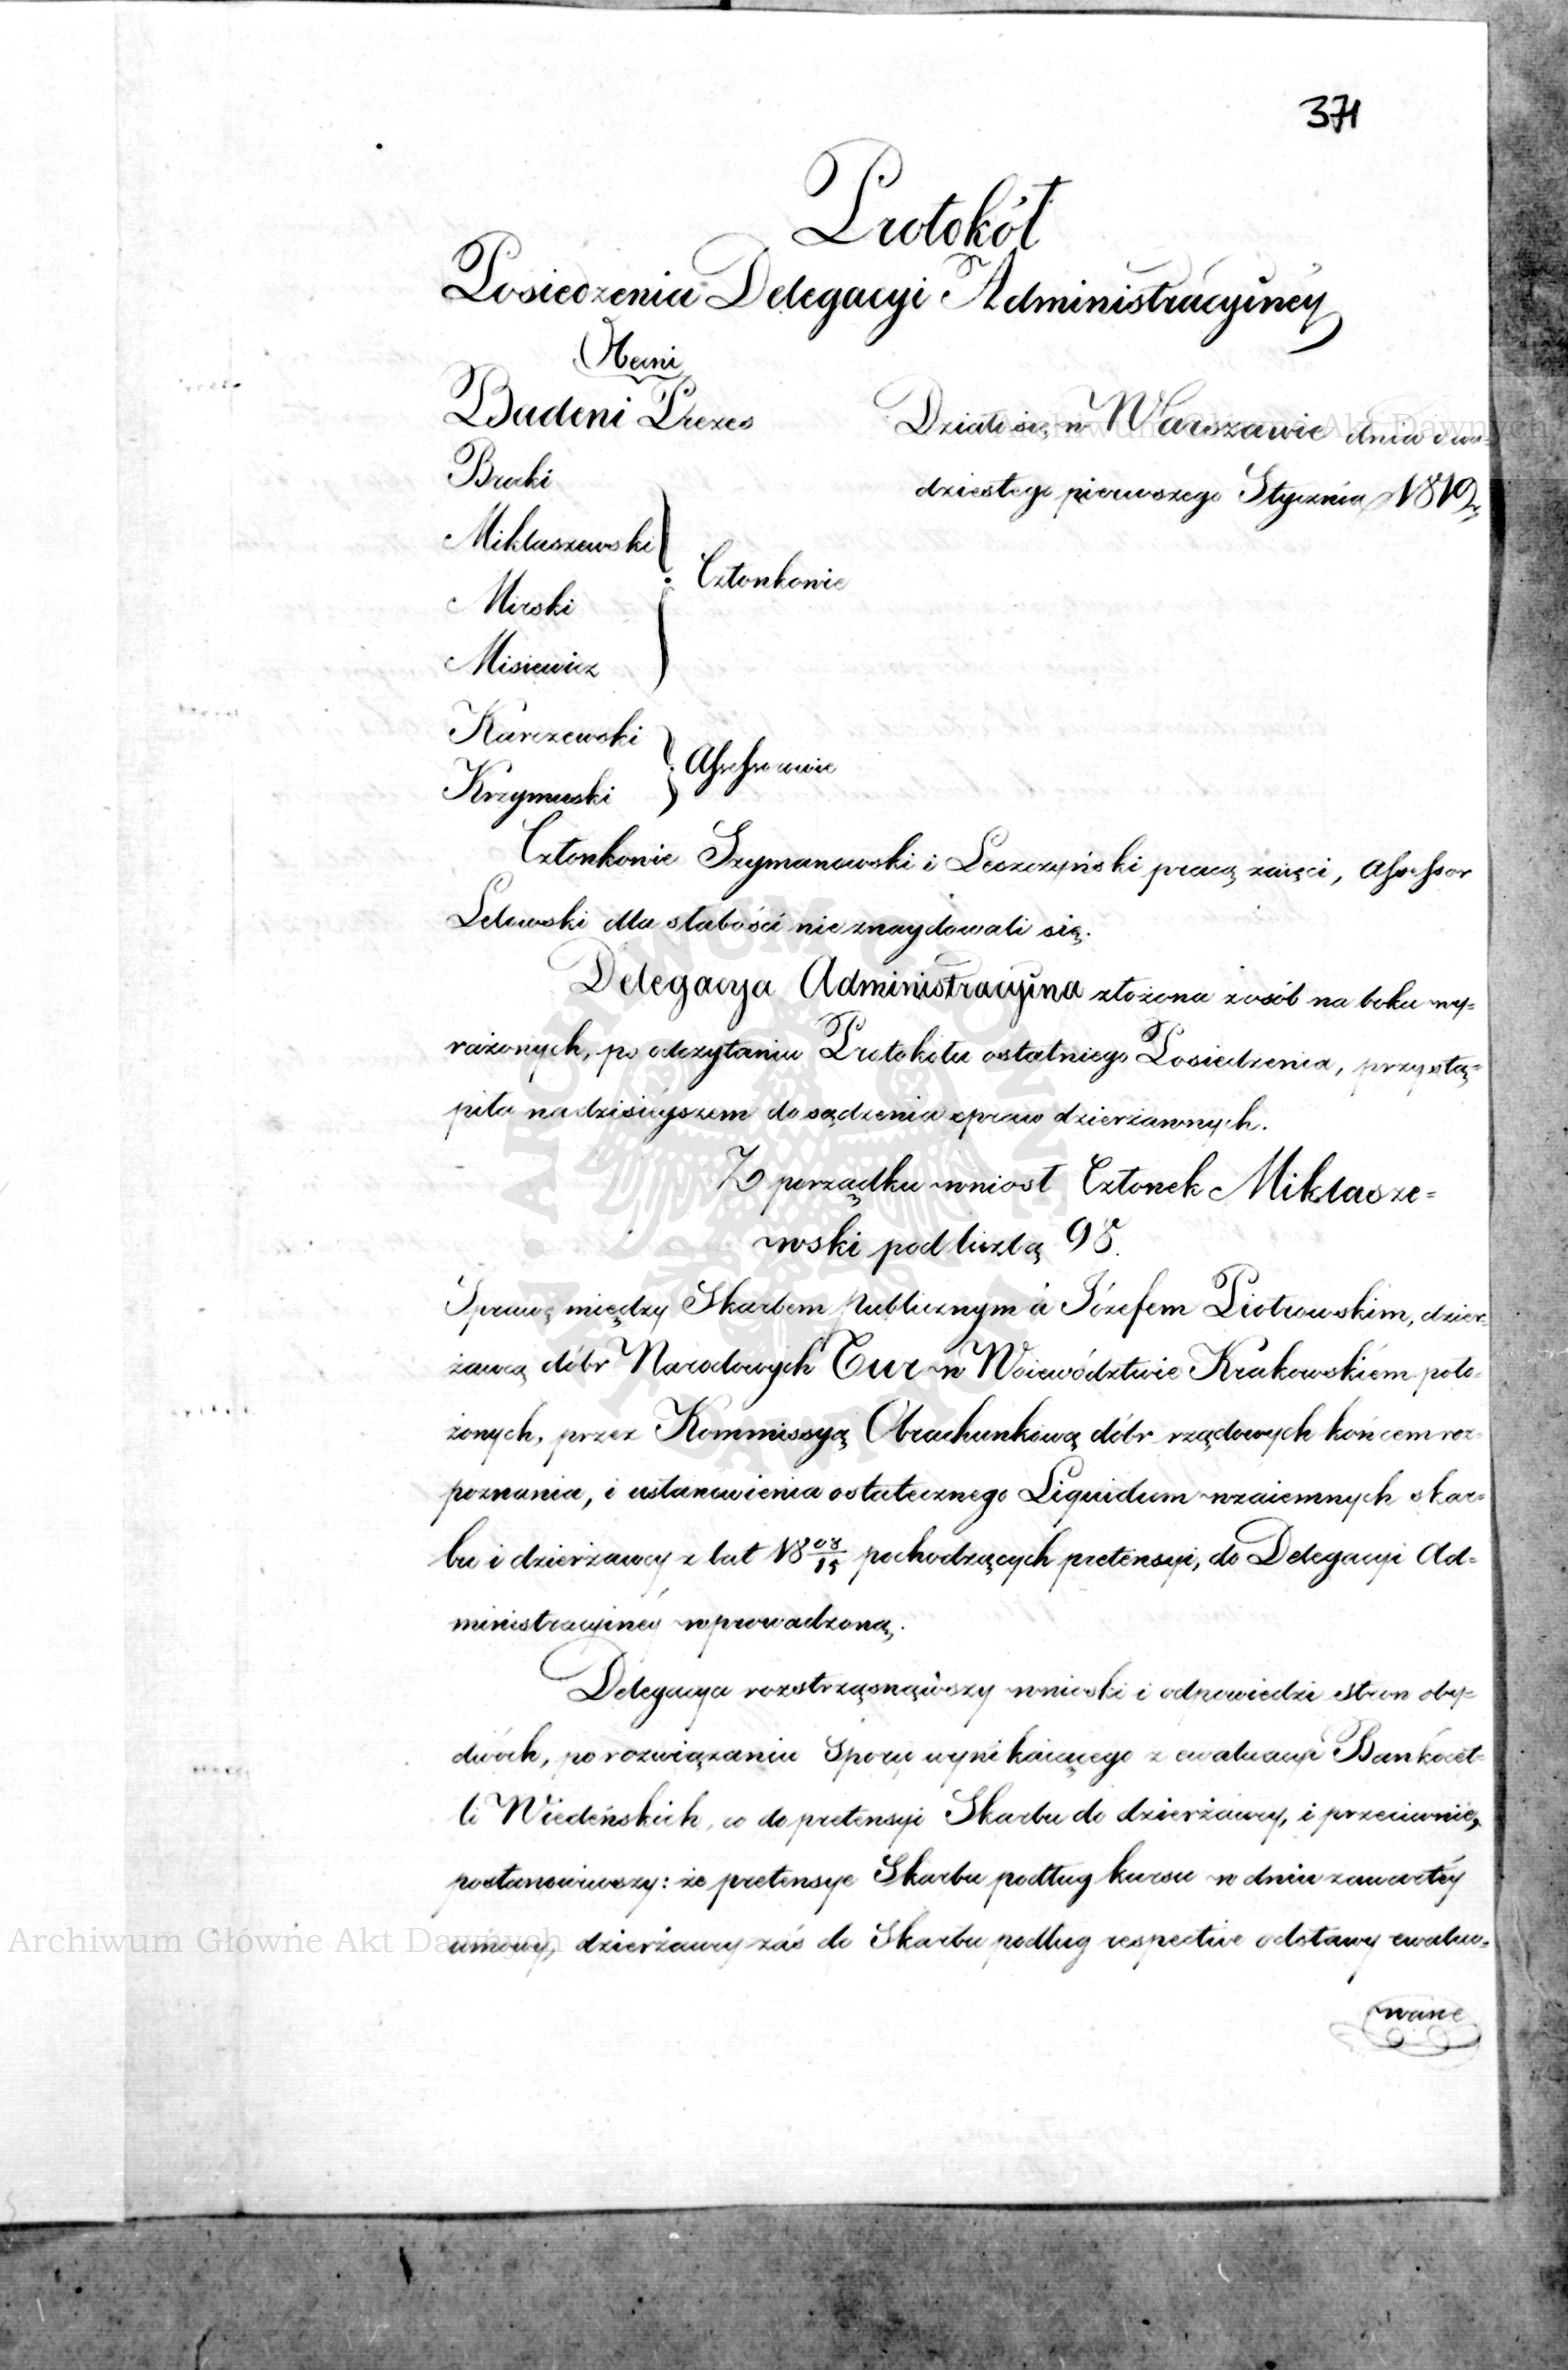 371
Protokół
Posiedzenia Delegacyi Administracyiney
Obecni
Badeni Prezes
Działo się w Warszawie dnia dwu=
dziestego pierwszego Stycznia 1819 r.
Brocki
Miklaszewski
Mirski
Misiewicz
Członkowie
Karczewski
Krzymuski
Assessorowie
Członkowie Szymanowski i Leszczyński pracą zaięci, Assessor
Lelowski dla słabości nie znaydowali się.
Delegacya Administracyina złożona z osób na boku wy=
rażonych, po odczytaniu Protokołu ostatniego Posiedzenia, przystą=
piła na dzisieyszem do sądzenia spraw dzierżawnych.
Z porządku wniosł Członek Miklasze=
wski pod liczbą 98.
Sprawę między Skarbem Publicznym à Józefem Piotrowskim, dzier=
żawcą dóbr Narodowych Tur w Woiewództwie Krakowskiém poło=
żonych, przez Kommissyą Obrachunkową dóbr rządowych końcem roz=
poznania, i ustanowienia ostatecznego Liquidum wzaiemnych skar=
bu i dzierżawcy z lat 18 08/15 pochodzących pretensyi, do Delegacyi Ad=
ministracyiney wprowadzoną.
Delegacya rozstrząsnąwszy wnioski i odpowiedzi stron oby=
dwóch, po rozwiązaniu Sporu wynikaiącego z ewaluacyi Bankocet=
li Wiedeńskich, co do pretensyi Skarbu do dzierżawcy, i przeciwnie,
postanowiwszy: że pretensye Skarbu podług kursu w dniu zawartéy
umowy, dzierżawcy zaś do Skarbu podług respective odstawy ewaluo=
wane
Archiwum Główne Akt Dawnych